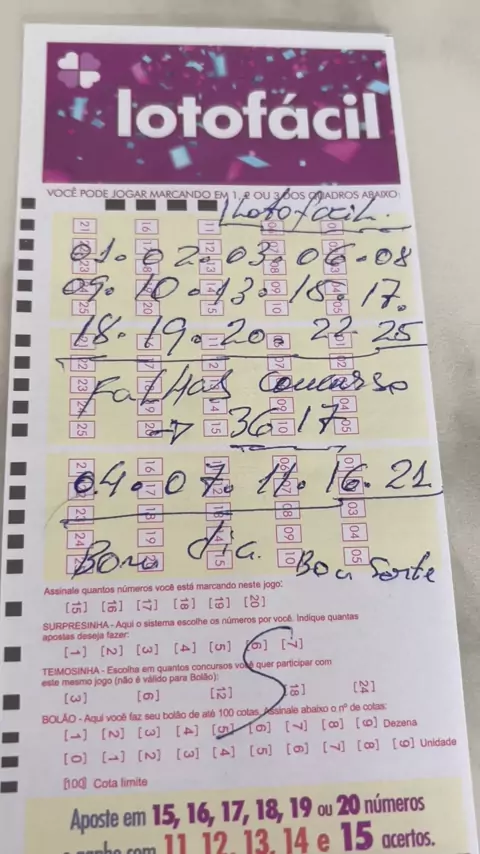 lotofácil
VOCÊ PODE JOGAR MARCANDO EM 1, 2 OU 3 DOS QUADROS ABAIXO:
Lotofácil.
01. 02. 03. 06. 08
09. 10. 13. 15. 17.
18. 19. 20. 22. 25
FALHAS Concurso
→ 3617
04. 07. 11. 16. 21
Bom dia. Boa Sorte
Assinale quantos números você está marcando neste jogo:
[15] [16] [17] [18] [19] [20]
SURPRESINHA - Aqui o sistema escolhe os números por você. Indique quantas
apostas deseja fazer:
[1] [2] [3] [4] [5] [6] [7]
TEIMOSINHA - Escolha em quantos concursos você quer participar com
este mesmo jogo (não é válido para Bolão):
[3] [6] [12] [18] [24]
BOLÃO - Aqui você faz seu bolão de até 100 cotas. Assinale abaixo o nº de cotas:
[1] [2] [3] [4] [5] [6] [7] [8] [9] Dezena
[0] [1] [2] [3] [4] [5] [6] [7] [8] [9] Unidade
[100] Cota limite
Aposte em 15, 16, 17, 18, 19 ou 20 números
e ganhe com 11, 12, 13, 14 e 15 acertos.